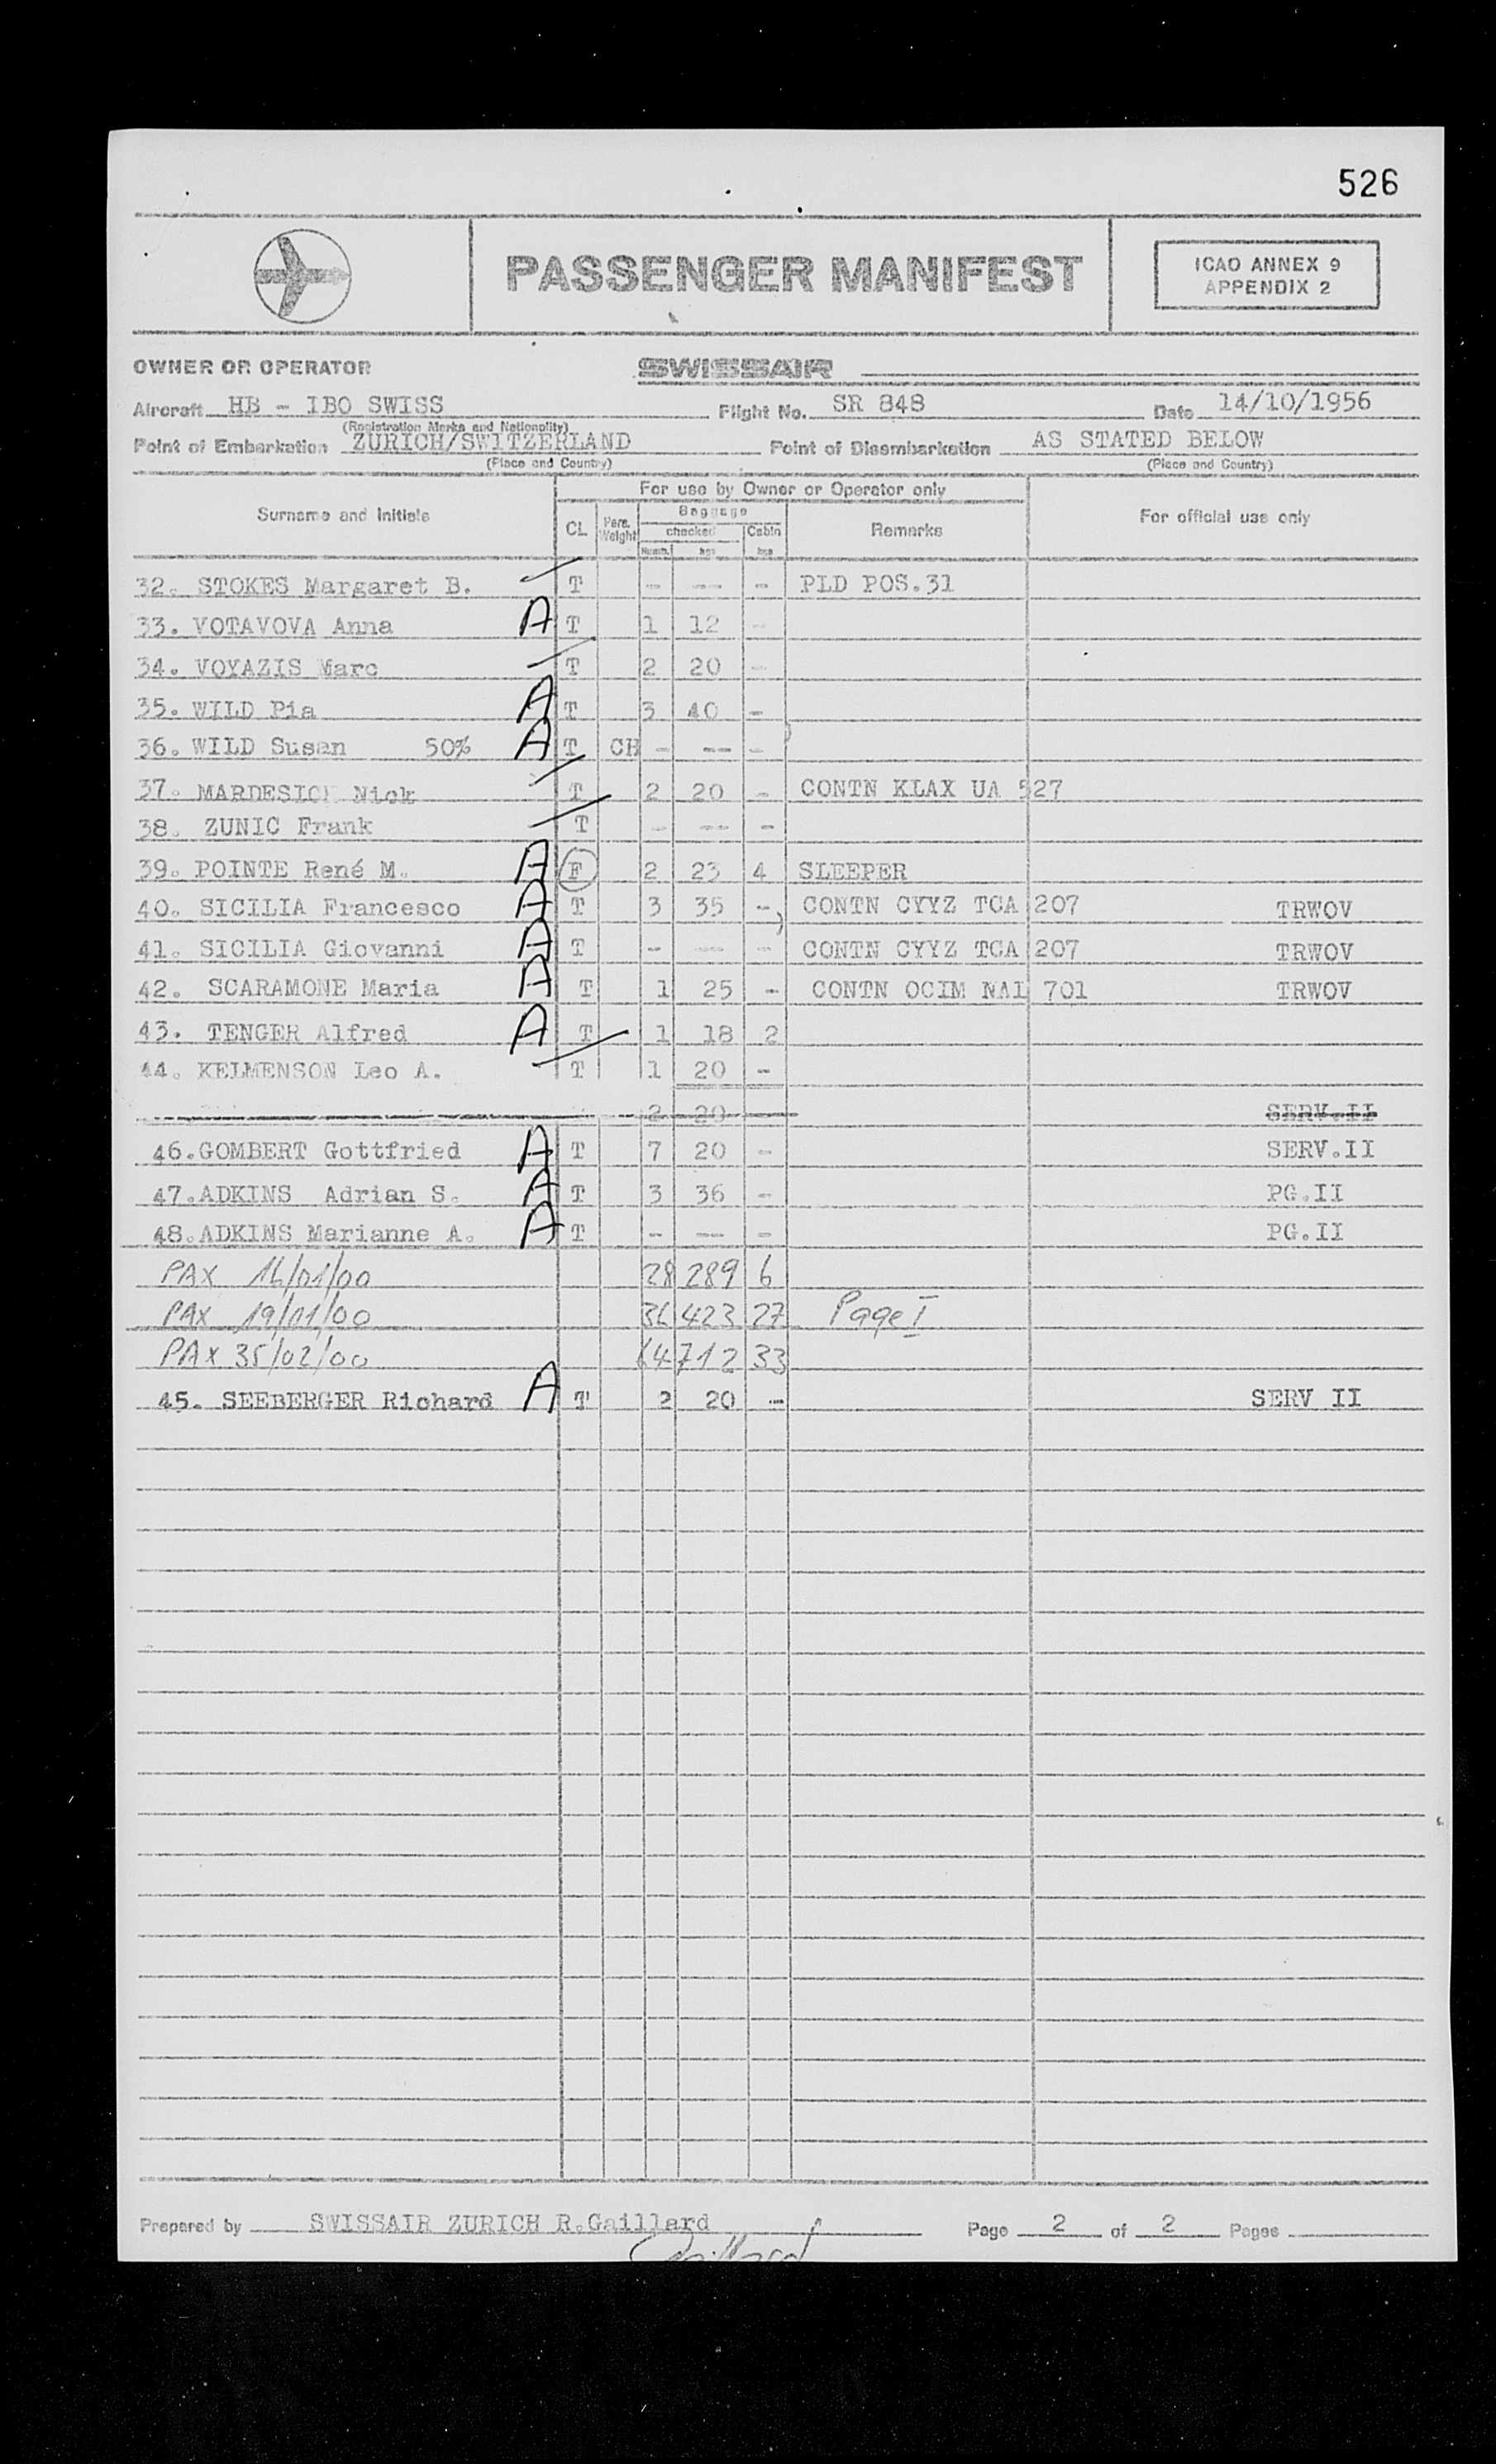 526
PASSENGER MANIFEST
ICAO ANNEX 9
APPENDIX 2
OWNER OR OPERATOR SWISSAIR
Aircraft HB - IBO SWISS Flight No. SR 848 Date 14/10/1956
(Registration Marks and Nationality)
Point of Embarkation ZURICH/SWITZERLAND Point of Disembarkation AS STATED BELOW
(Place and Country) (Place and Country)
For use by Owner or Operator only
Surname and Initials CL Pers. Weight Baggage checked Cabin Remarks For official use only
Numb. kgs kgs
32. STOKES Margaret B. T - -- - PLD POS.31
33. VOTAVOVA Anna A T 1 12 -
34. VOYAZIS Marc T 2 20 -
35. WILD Pia A T 3 40 -
36. WILD Susan 50% A T CH - -- -
37. MARDESICH Nick T 2 20 - CONTN KLAX UA 527
38. ZUNIC Frank T - -- -
39. POINTE René M. A F 2 23 4 SLEEPER
40. SICILIA Francesco A T 3 35 - CONTN CYYZ TCA 207 TRWOV
41. SICILIA Giovanni A T - -- - CONTN CYYZ TCA 207 TRWOV
42. SCARAMONE Maria A T 1 25 - CONTN OCIM NAL 701 TRWOV
43. TENGER Alfred A T 1 18 2
44. KELMENSON Leo A. T 1 20 -
2 20 SERV.II
46.GOMBERT Gottfried A T 7 20 - SERV.II
47.ADKINS Adrian S. A T 3 36 - PG.II
48.ADKINS Marianne A. A T - -- - PG.II
PAX 16/01/00 28 289 6
PAX 19/01/00 36 423 27 Page I
PAX 35/02/00 64 712 33
45. SEEBERGER Richard A T 2 20 - SERV II
Prepared by SWISSAIR ZURICH R.Gaillard Page 2 of 2 Pages
Gaillard